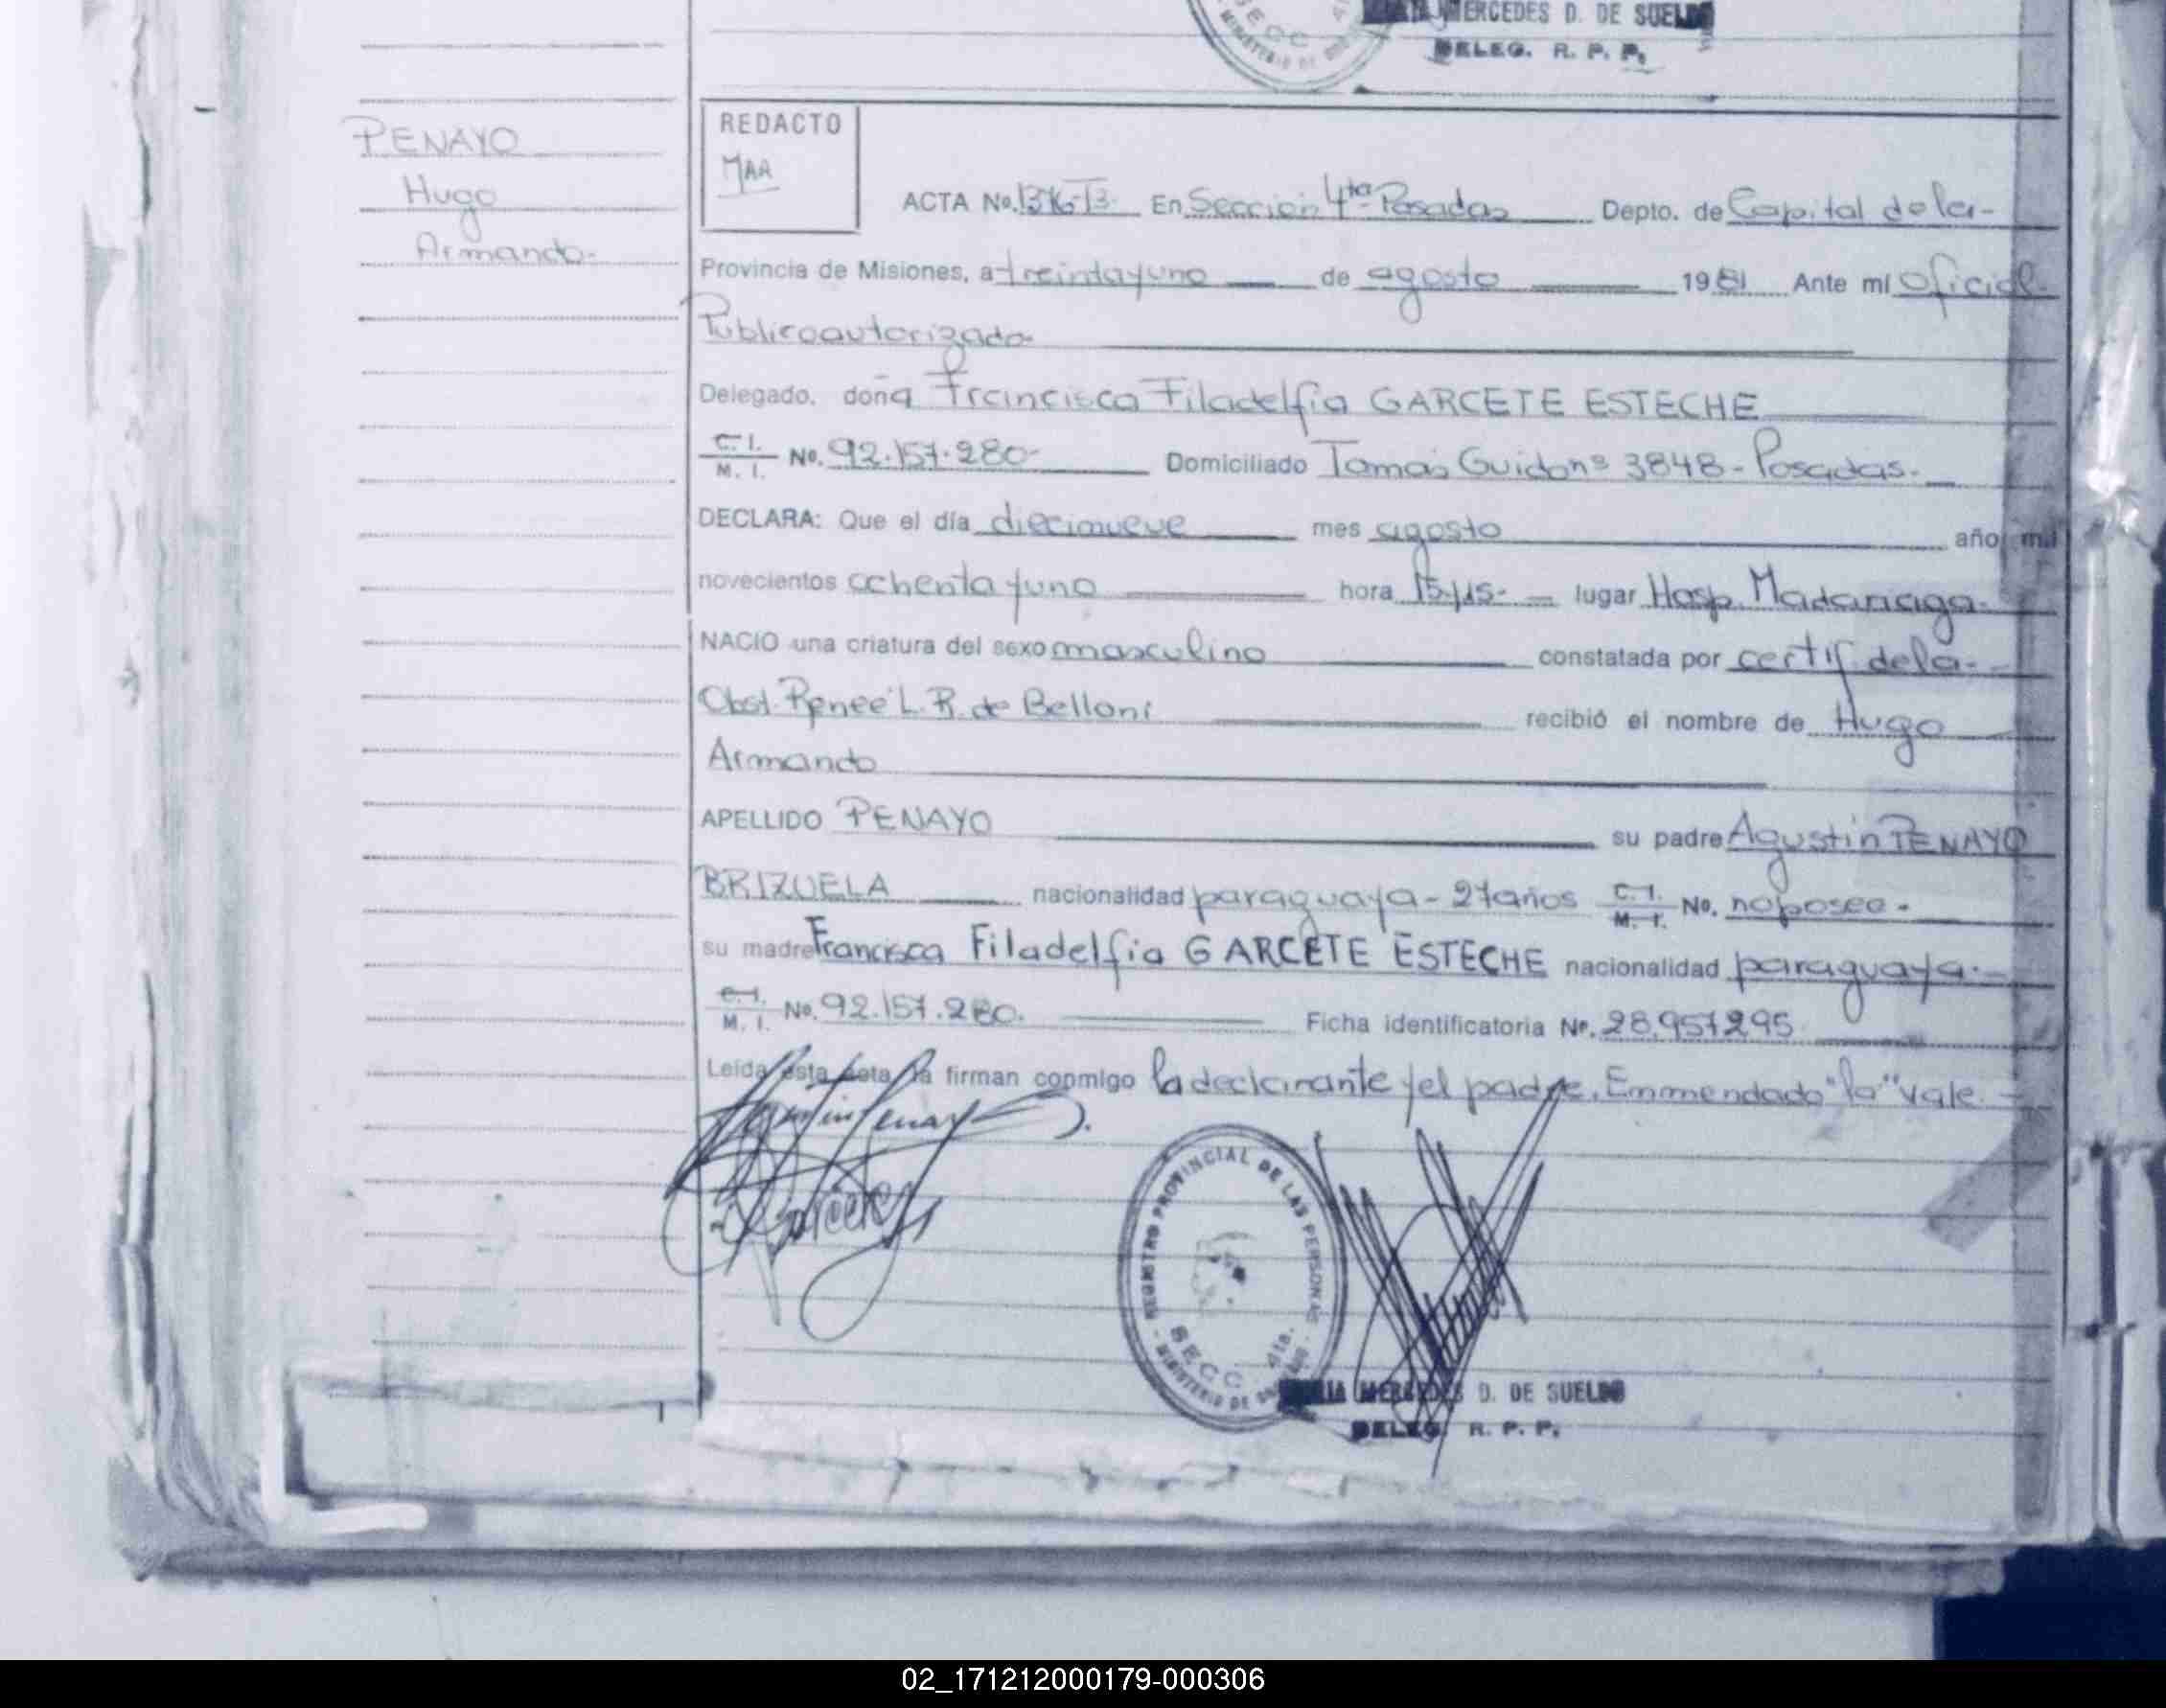 MERCEDES D. DE SUELDO
DELEG. R. P. P.
PENAYO
Hugo
Armando-
REDACTO
MAA
ACTA No. En Sección 4ta Posadas Depto. de Capital de la-
Provincia de Misiones, a treinta y uno de agosto 1981 Ante mí oficial
Publico autorizado
Delegado, doña Francisca Filadelfia GARCETE ESTECHE
C. I. / M. I. No. 92.157.280- Domiciliado Tomas Guido nº 3848- Posadas.
DECLARA: Que el día diecinueve mes agosto año mil
novecientos ochenta y uno hora 15,15- lugar Hosp. Madariaga-
NACIO una criatura del sexo masculino constatada por certif de la-
Obst. Renee L. R. de Belloni recibió el nombre de Hugo
Armando
APELLIDO PENAYO su padre Agustin PENAYO
BRIZUELA nacionalidad paraguaya- 27 años C. I. / M. I. No. no posee-
su madre Francisca Filadelfia GARCETE ESTECHE nacionalidad paraguaya-
C. I. / M. I. No. 92.157.280. Ficha identificatoria No. 28.957295
Leída esta acta la firman conmigo la declarante y el padre. Emmendado "la" vale.
Agustin Penayo
Garcete
REGISTRO PROVINCIAL DE LAS PERSONAS
SECC. 4ta.
MINISTERIO DE
MERCEDES D. DE SUELDO
DELEG. R. P. P.
02_171212000179-000306